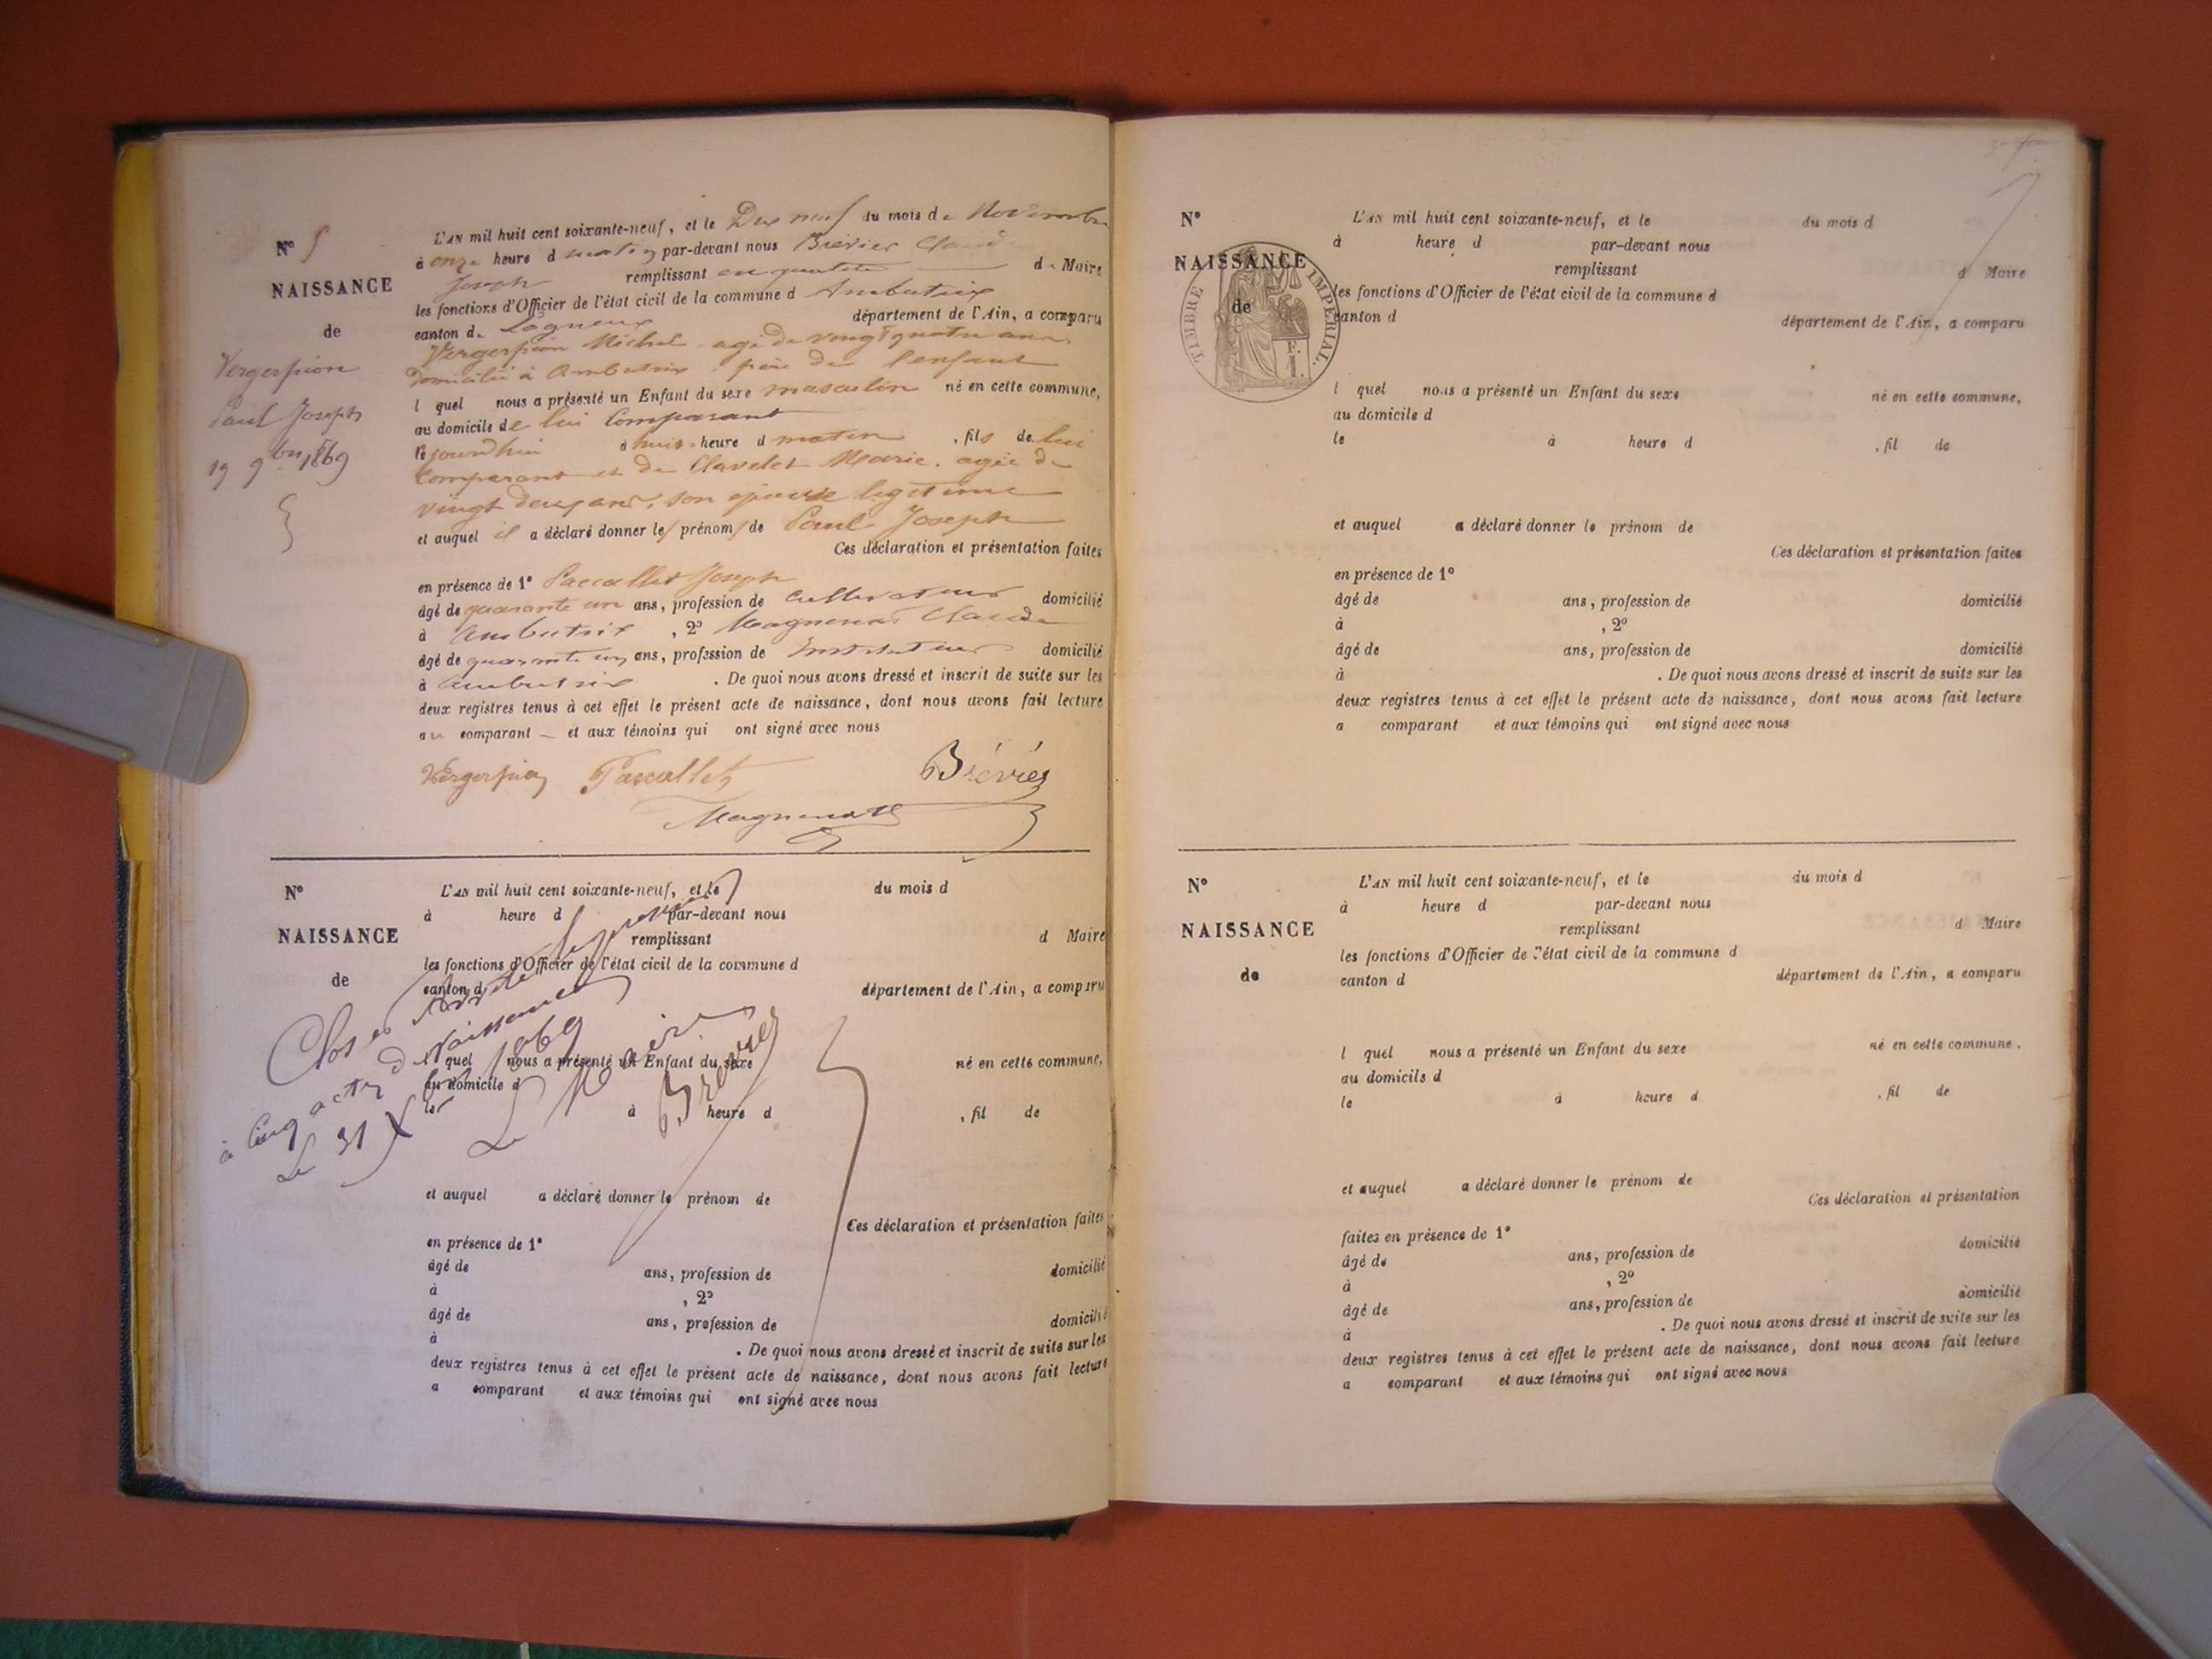 N° 5
NAISSANCE
de
Vergerpion
Paul Joseph
19 9bre 1869
L'AN mil huit cent soixante-neuf, et le Dix neuf du mois de Novembre
à onze heure d matin par-devant nous Brévier Claude
Joseph remplissant en qualité de Maire
les fonctions d'Officier de l'état civil de la commune d Ambutrix
canton de Lagnieux département de l'Ain, a comparu
Vergerpion Michel, agé de vingt quatre ans,
domicilié à Ambutrix, père de l'enfant
l quel nous a présenté un Enfant du sexe masculin né en cette commune,
au domicile de lui Comparant
le jourdhui à huit heure d matin, fils de lui
Comparant et de Clavelet Marie, agée de
vingt deux ans, son épouse légitime
et auquel il a déclaré donner le prénom de Paul Joseph
Ces déclaration et présentation faites
en présence de 1° Pascallet Joseph
âgé de quarante un ans, profession de Cultivateur domicilié
à Ambutrix, 2° Magnenat Claude
âgé de quarante un ans, profession de Instituteur domicilié
à Ambutrix. De quoi nous avons dressé et inscrit de suite sur les
deux registres tenus à cet effet le présent acte de naissance, dont nous avons fait lecture
au comparant et aux témoins qui ont signé avec nous
Vergerpion Pascallet Brévier
Magnenat
N°
NAISSANCE
de
L'AN mil huit cent soixante-neuf, et le du mois d
à heure d par-devant nous
remplissant d Maire
les fonctions d'Officier de l'état civil de la commune d
canton d département de l'Ain, a comparu
l quel nous a présenté un Enfant du sexe né en cette commune,
au domicile d
le à heure d , fil de
et auquel a déclaré donner le prénom de
Ces déclaration et présentation faites
en présence de 1°
âgé de ans, profession de domicilié
à , 2°
âgé de ans, profession de domicilié
à . De quoi nous avons dressé et inscrit de suite sur les
deux registres tenus à cet effet le présent acte de naissance, dont nous avons fait lecture
a comparant et aux témoins qui ont signé avec nous
Clos et arrêté le présent
à Cinq actes de Naissances
Le 31 Xbre 1869
Le Maire
Brévier
N°
NAISSANCE
de
TIMBRE IMPÉRIAL.
F.
1.
L'AN mil huit cent soixante-neuf, et le du mois d
à heure d par-devant nous
remplissant d Maire
les fonctions d'Officier de l'état civil de la commune d
canton d département de l'Ain, a comparu
l quel nous a présenté un Enfant du sexe né en cette commune,
au domicile d
le à heure d , fil de
et auquel a déclaré donner le prénom de
Ces déclaration et présentation faites
en présence de 1°
âgé de ans, profession de domicilié
à , 2°
âgé de ans, profession de domicilié
à . De quoi nous avons dressé et inscrit de suite sur les
deux registres tenus à cet effet le présent acte de naissance, dont nous avons fait lecture
a comparant et aux témoins qui ont signé avec nous
N°
NAISSANCE
de
L'AN mil huit cent soixante-neuf, et le du mois d
à heure d par-devant nous
remplissant d Maire
les fonctions d'Officier de l'état civil de la commune d
canton d département de l'Ain, a comparu
l quel nous a présenté un Enfant du sexe né en cette commune.
au domicile d
le à heure d , fil de
et auquel a déclaré donner le prénom de
Ces déclaration et présentation
faites en présence de 1°
âgé de ans, profession de domicilié
à , 2°
âgé de ans, profession de domicilié
à . De quoi nous avons dressé et inscrit de suite sur les
deux registres tenus à cet effet le présent acte de naissance, dont nous avons fait lecture
a comparant et aux témoins qui ont signé avec nous